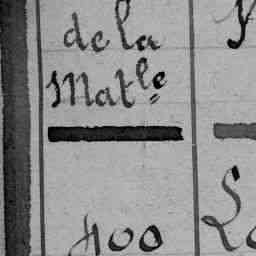 de la
Matle
400